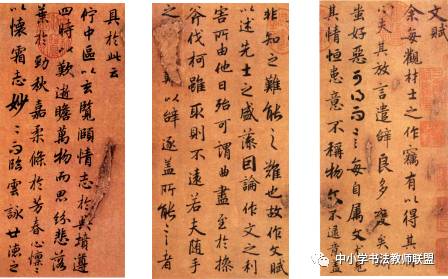 文賦
余每觀材士之作竊有以得其
心夫其放言遣辭良多變矣
蚩好惡可得而言每自属文尤
其情恒患意不稱物文不逮意盖
非知之難能之難也故作文賦
以述先士之盛藻因論作文之利
害所由他日殆可謂曲盡至於操
斧伐柯雖取則不遠若夫随手
之以辭逐盖所能言者
具於此云
佇中區以玄覽頤情志於典墳遵
四時以歎逝瞻萬物而思紛悲落
葉於勁秋嘉柔條於芳春心懍
以懷霜志眇眇而臨雲詠世德之
中小学书法教师联盟